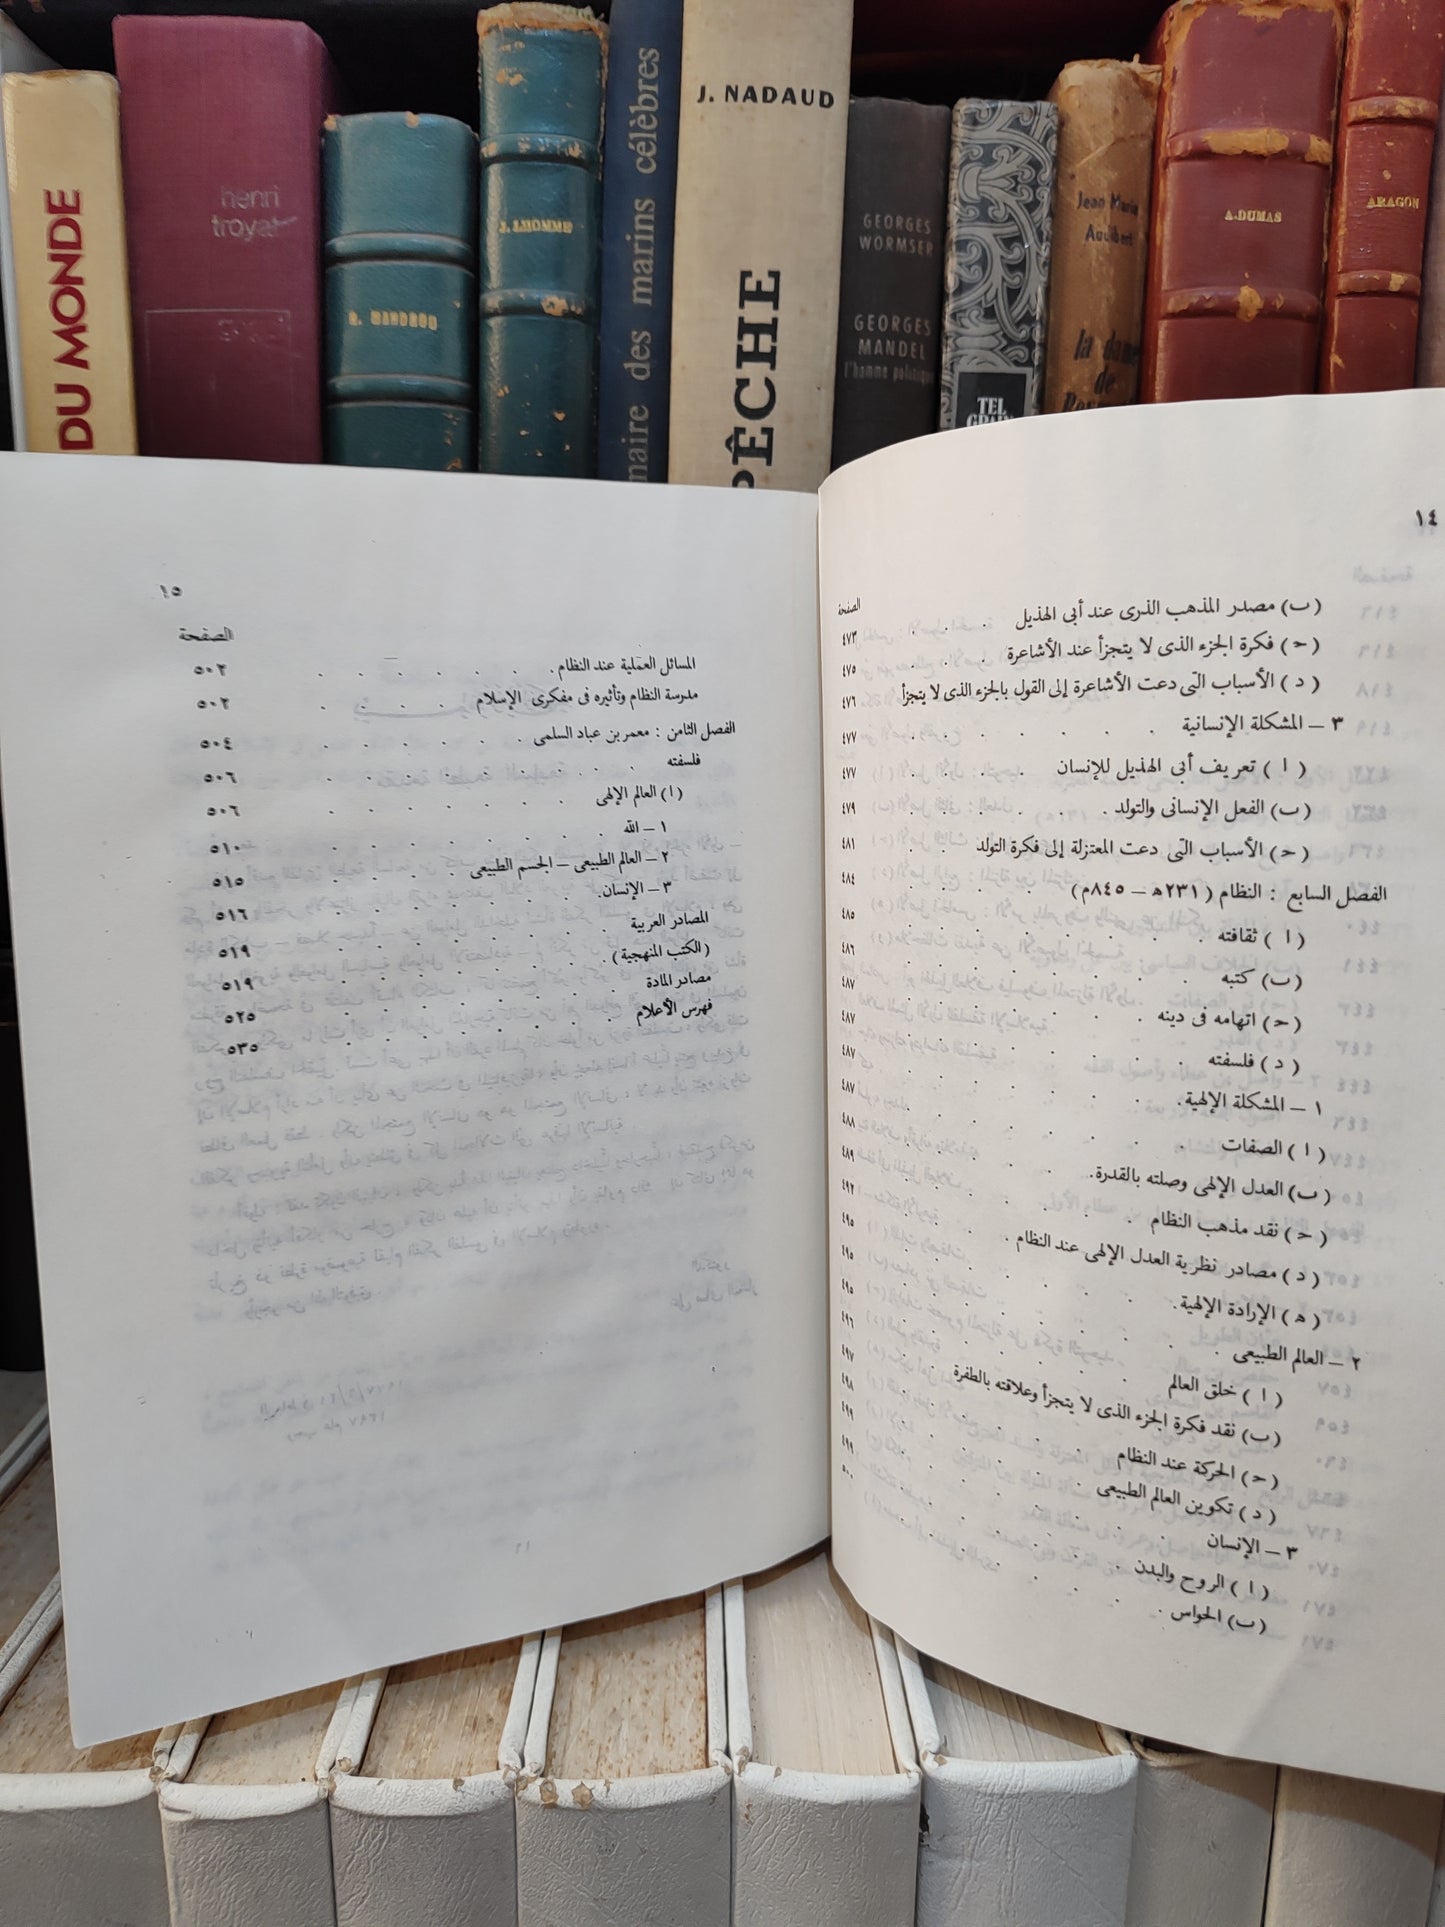 DU MONDE
henri
troyat
J. LHOMME
naire des marins célèbres
J. NADAUD
PÊCHE
GEORGES
WORMSER
GEORGES
MANDEL
l'homme politique
TEL
Jean Marie
Audibert
la dame
de
A. DUMAS
ARAGON
١٤
الصفحة
(ب) مصدر المذهب الذرى عند أبى الهذيل ٤٧٣
(ح) فكرة الجزء الذى لا يتجزأ عند الأشاعرة ٤٧٥
(د) الأسباب التى دعت الأشاعرة إلى القول بالجزء الذى لا يتجزأ ٤٧٦
٣ – المشكلة الإنسانية ٤٧٧
(ا) تعريف أبى الهذيل للإنسان ٤٧٧
(ب) الفعل الإنسانى والتولد ٤٧٩
(ح) الأسباب التى دعت المعتزلة إلى فكرة التولد ٤٨١
الفصل السابع : النظام (٢٣١ه – ٨٤٥م) ٤٨٤
(ا) ثقافته ٤٨٥
(ب) كتبه ٤٨٦
(ح) اتهامه فى دينه ٤٨٧
(د) فلسفته ٤٨٧
١ – المشكلة الإلهية ٤٨٧
(ا) الصفات ٤٨٧
(ب) العدل الإلهى وصلته بالقدرة ٤٨٨
(ح) نقد مذهب النظام ٤٨٩
(د) مصادر نظرية العدل الإلهى عند النظام ٤٩٢
(ه) الإرادة الإلهية ٤٩٥
٢ – العالم الطبيعى ٤٩٥
(ا) خلق العالم ٤٩٥
(ب) نقد فكرة الجزء الذى لا يتجزأ وعلاقته بالطفرة ٤٩٦
(ح) الحركة عند النظام ٤٩٧
(د) تكوين العالم الطبيعى ٤٩٨
٣ – الإنسان ٤٩٩
(ا) الروح والبدن ٤٩٩
(ب) الحواس ٥٠٠
١٥
الصفحة
المسائل العملية عند النظام ٥٠٢
مدرسة النظام وتأثيره فى مفكرى الإسلام ٥٠٢
الفصل الثامن : معمر بن عباد السلمى ٥٠٤
فلسفته ٥٠٦
(ا) العالم الإلهى ٥٠٦
١ – الله ٥١٠
٢ – العالم الطبيعى – الجسم الطبيعى ٥١٥
٣ – الإنسان ٥١٦
المصادر العربية ٥١٩
(الكتب المنهجية) ٥١٩
مصادر المادة ٥٢٥
فهرس الأعلام ٥٣٥